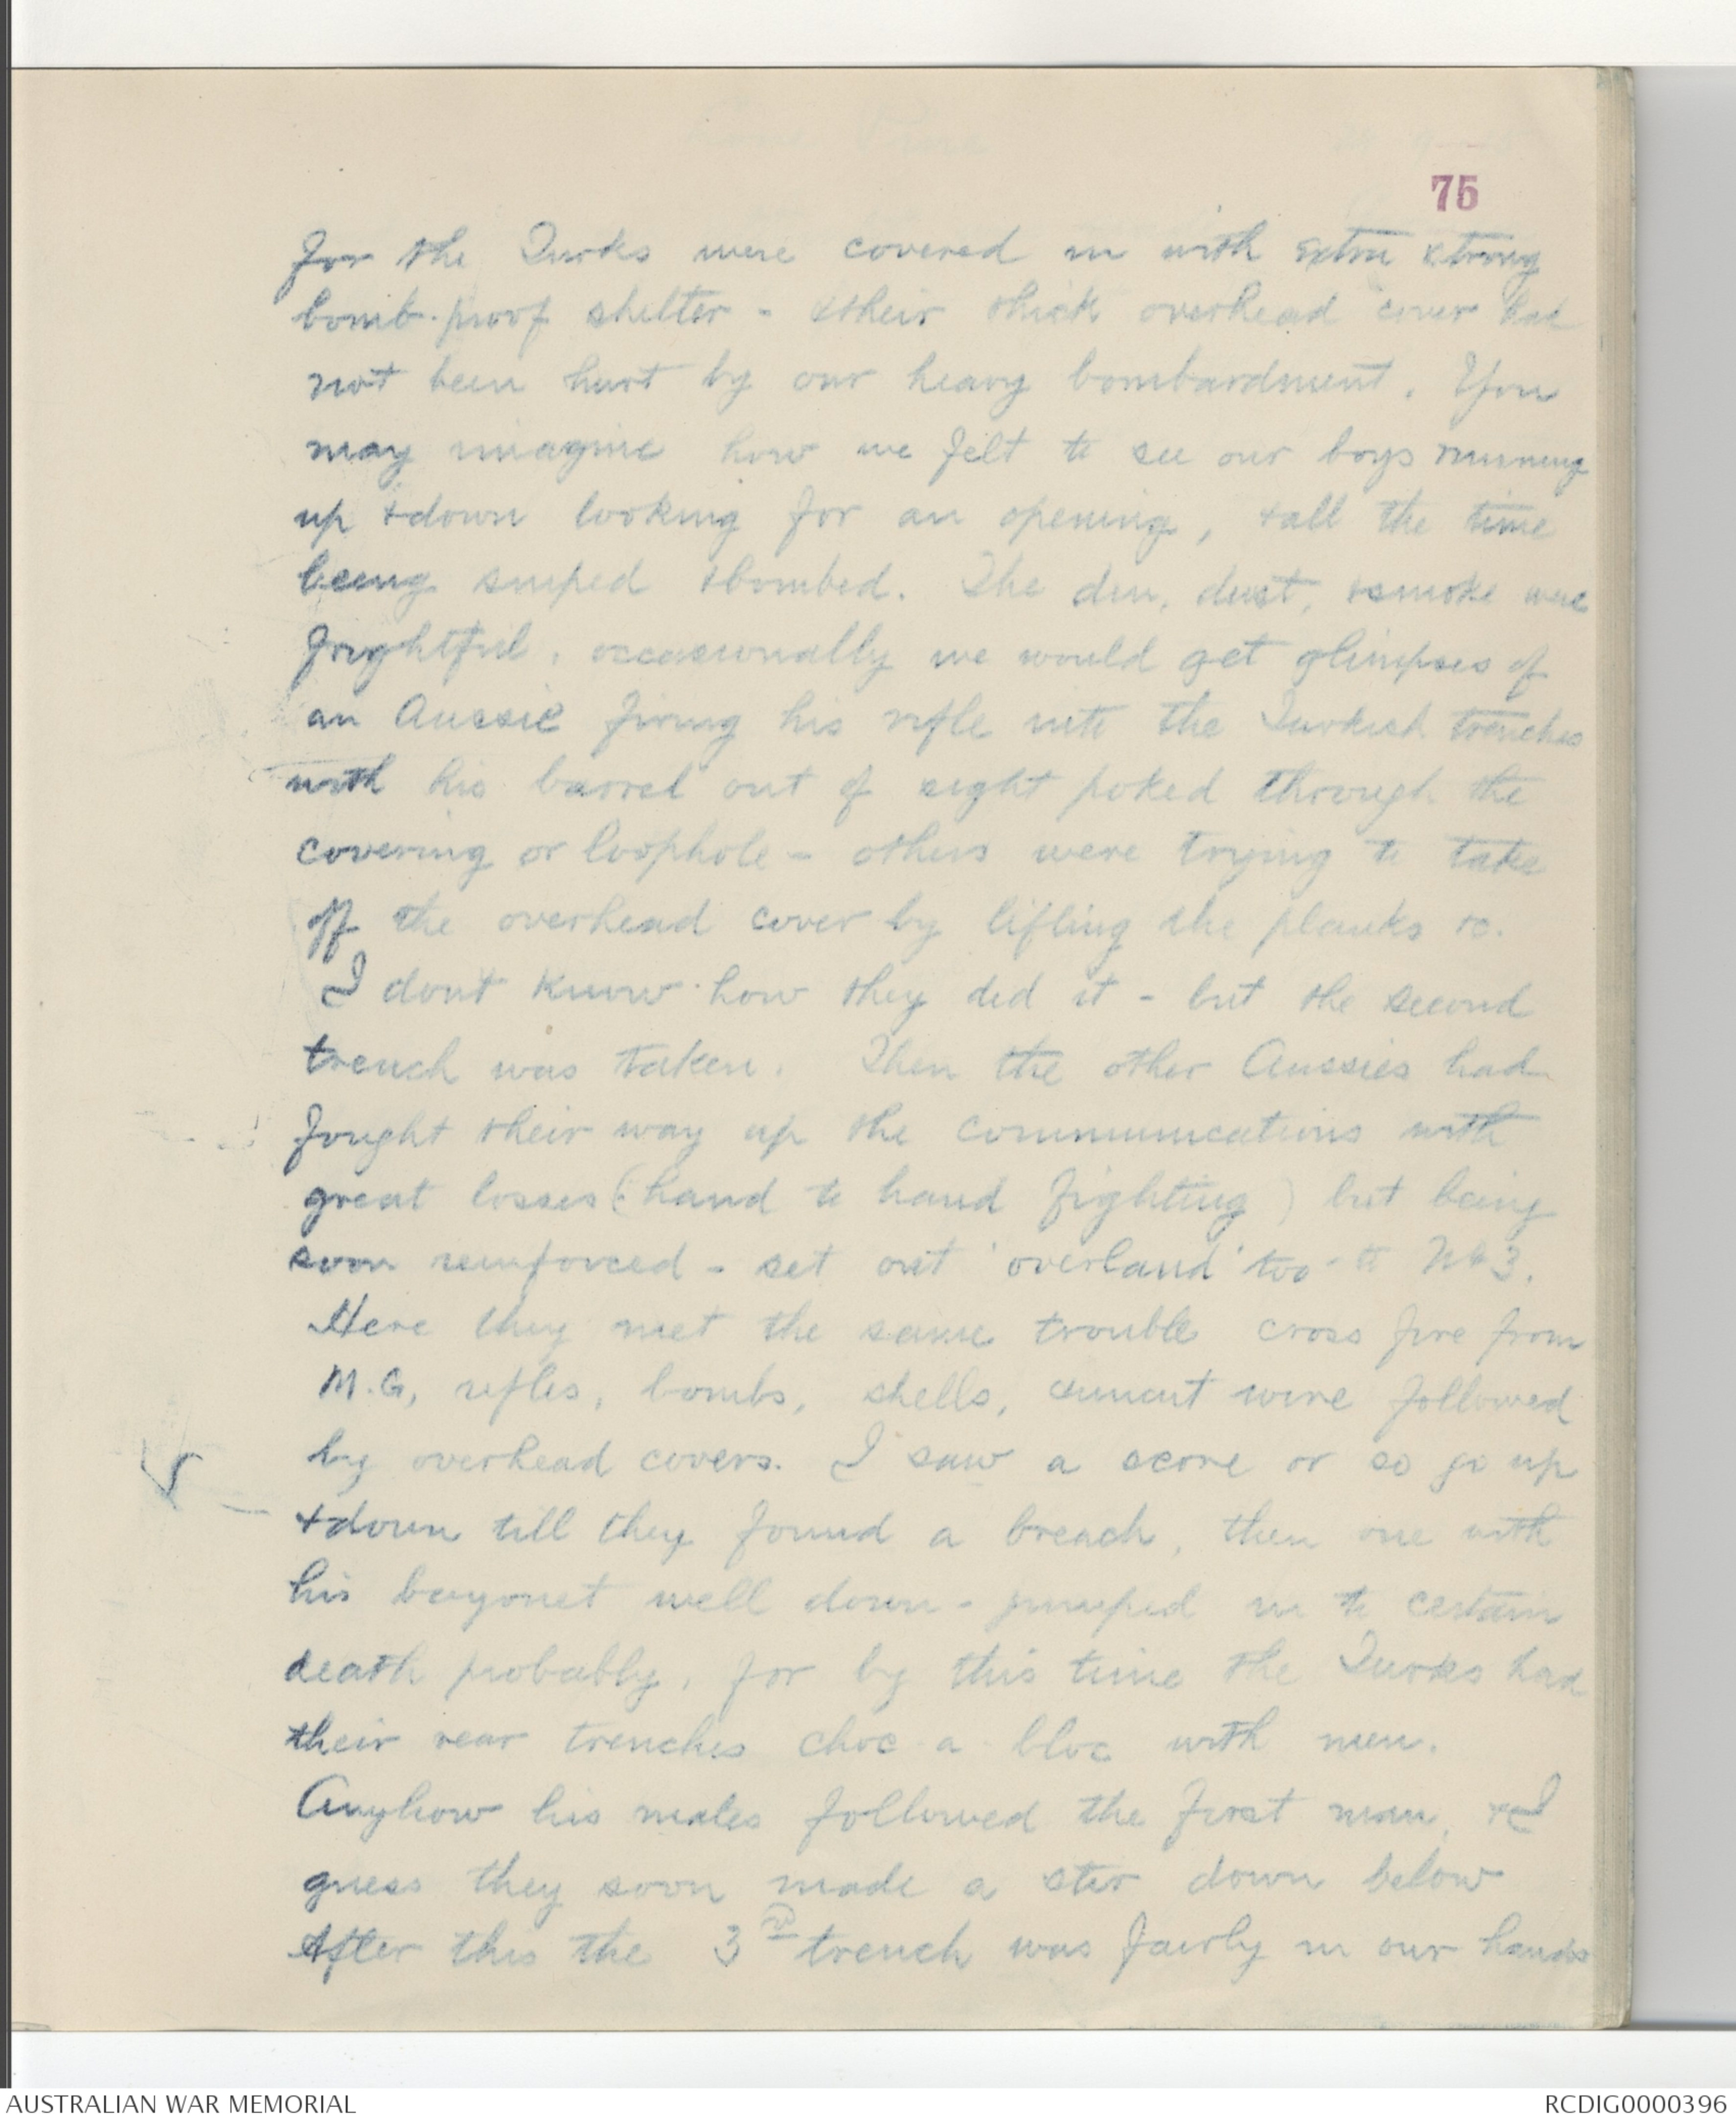 75
for the Turks were covered in with extra strong
bomb-proof shelter - & their thick overhead cover had
not been hurt by our heavy bombardment. You
may imagine how we felt to see our boys running
up & down looking for an opening, & all the time
being sniped & bombed. The din, dust, & smoke were
frightful, occasionally we would get glimpses of
an Aussie firing his rifle into the Turkish trenches
with his barrel out of sight poked through the
covering or loophole - others were trying to take
off the overhead cover by lifting the planks &c.
I dont know how they did it - but the second
trench was taken. Then the other Aussies had
fought their way up the communications with
great losses (hand to hand fighting) but being
soon reinforced - set out 'overland' too - to No 3.
Here they met the same trouble cross fire from
M.G, rifles, bombs, shells, uncut wire followed
by overhead covers. I saw a score or so go up
& down till they found a breach, then one with
his bayonet well down - jumped in to certain
death probably, for by this time the Turks had
their rear trenches choc a bloc with men.
Anyhow his mates followed the first man, & I
guess they soon made a stir down below
After this the 3rd trench was fairly in our hands
AUSTRALIAN WAR MEMORIAL
RCDIG0000396